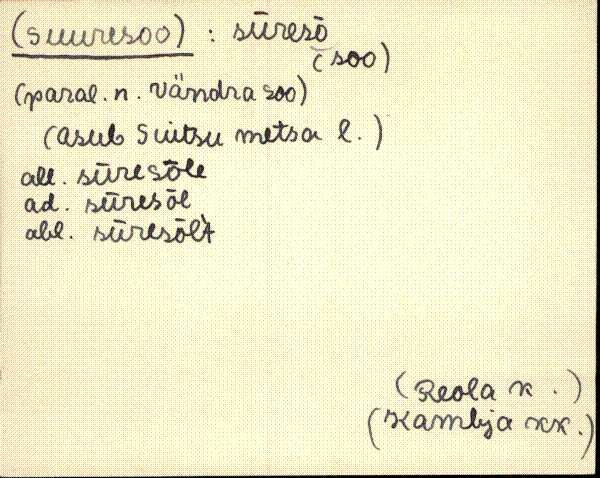 (Suuresoo) : sūresō
(soo)
(paral. n. Vändra soo)
(asub Suitsu metsa l.)
all. sūresōle
ad. sūresōl
abl. sūresōl't
(Reola k.)
(Kambja kk.)